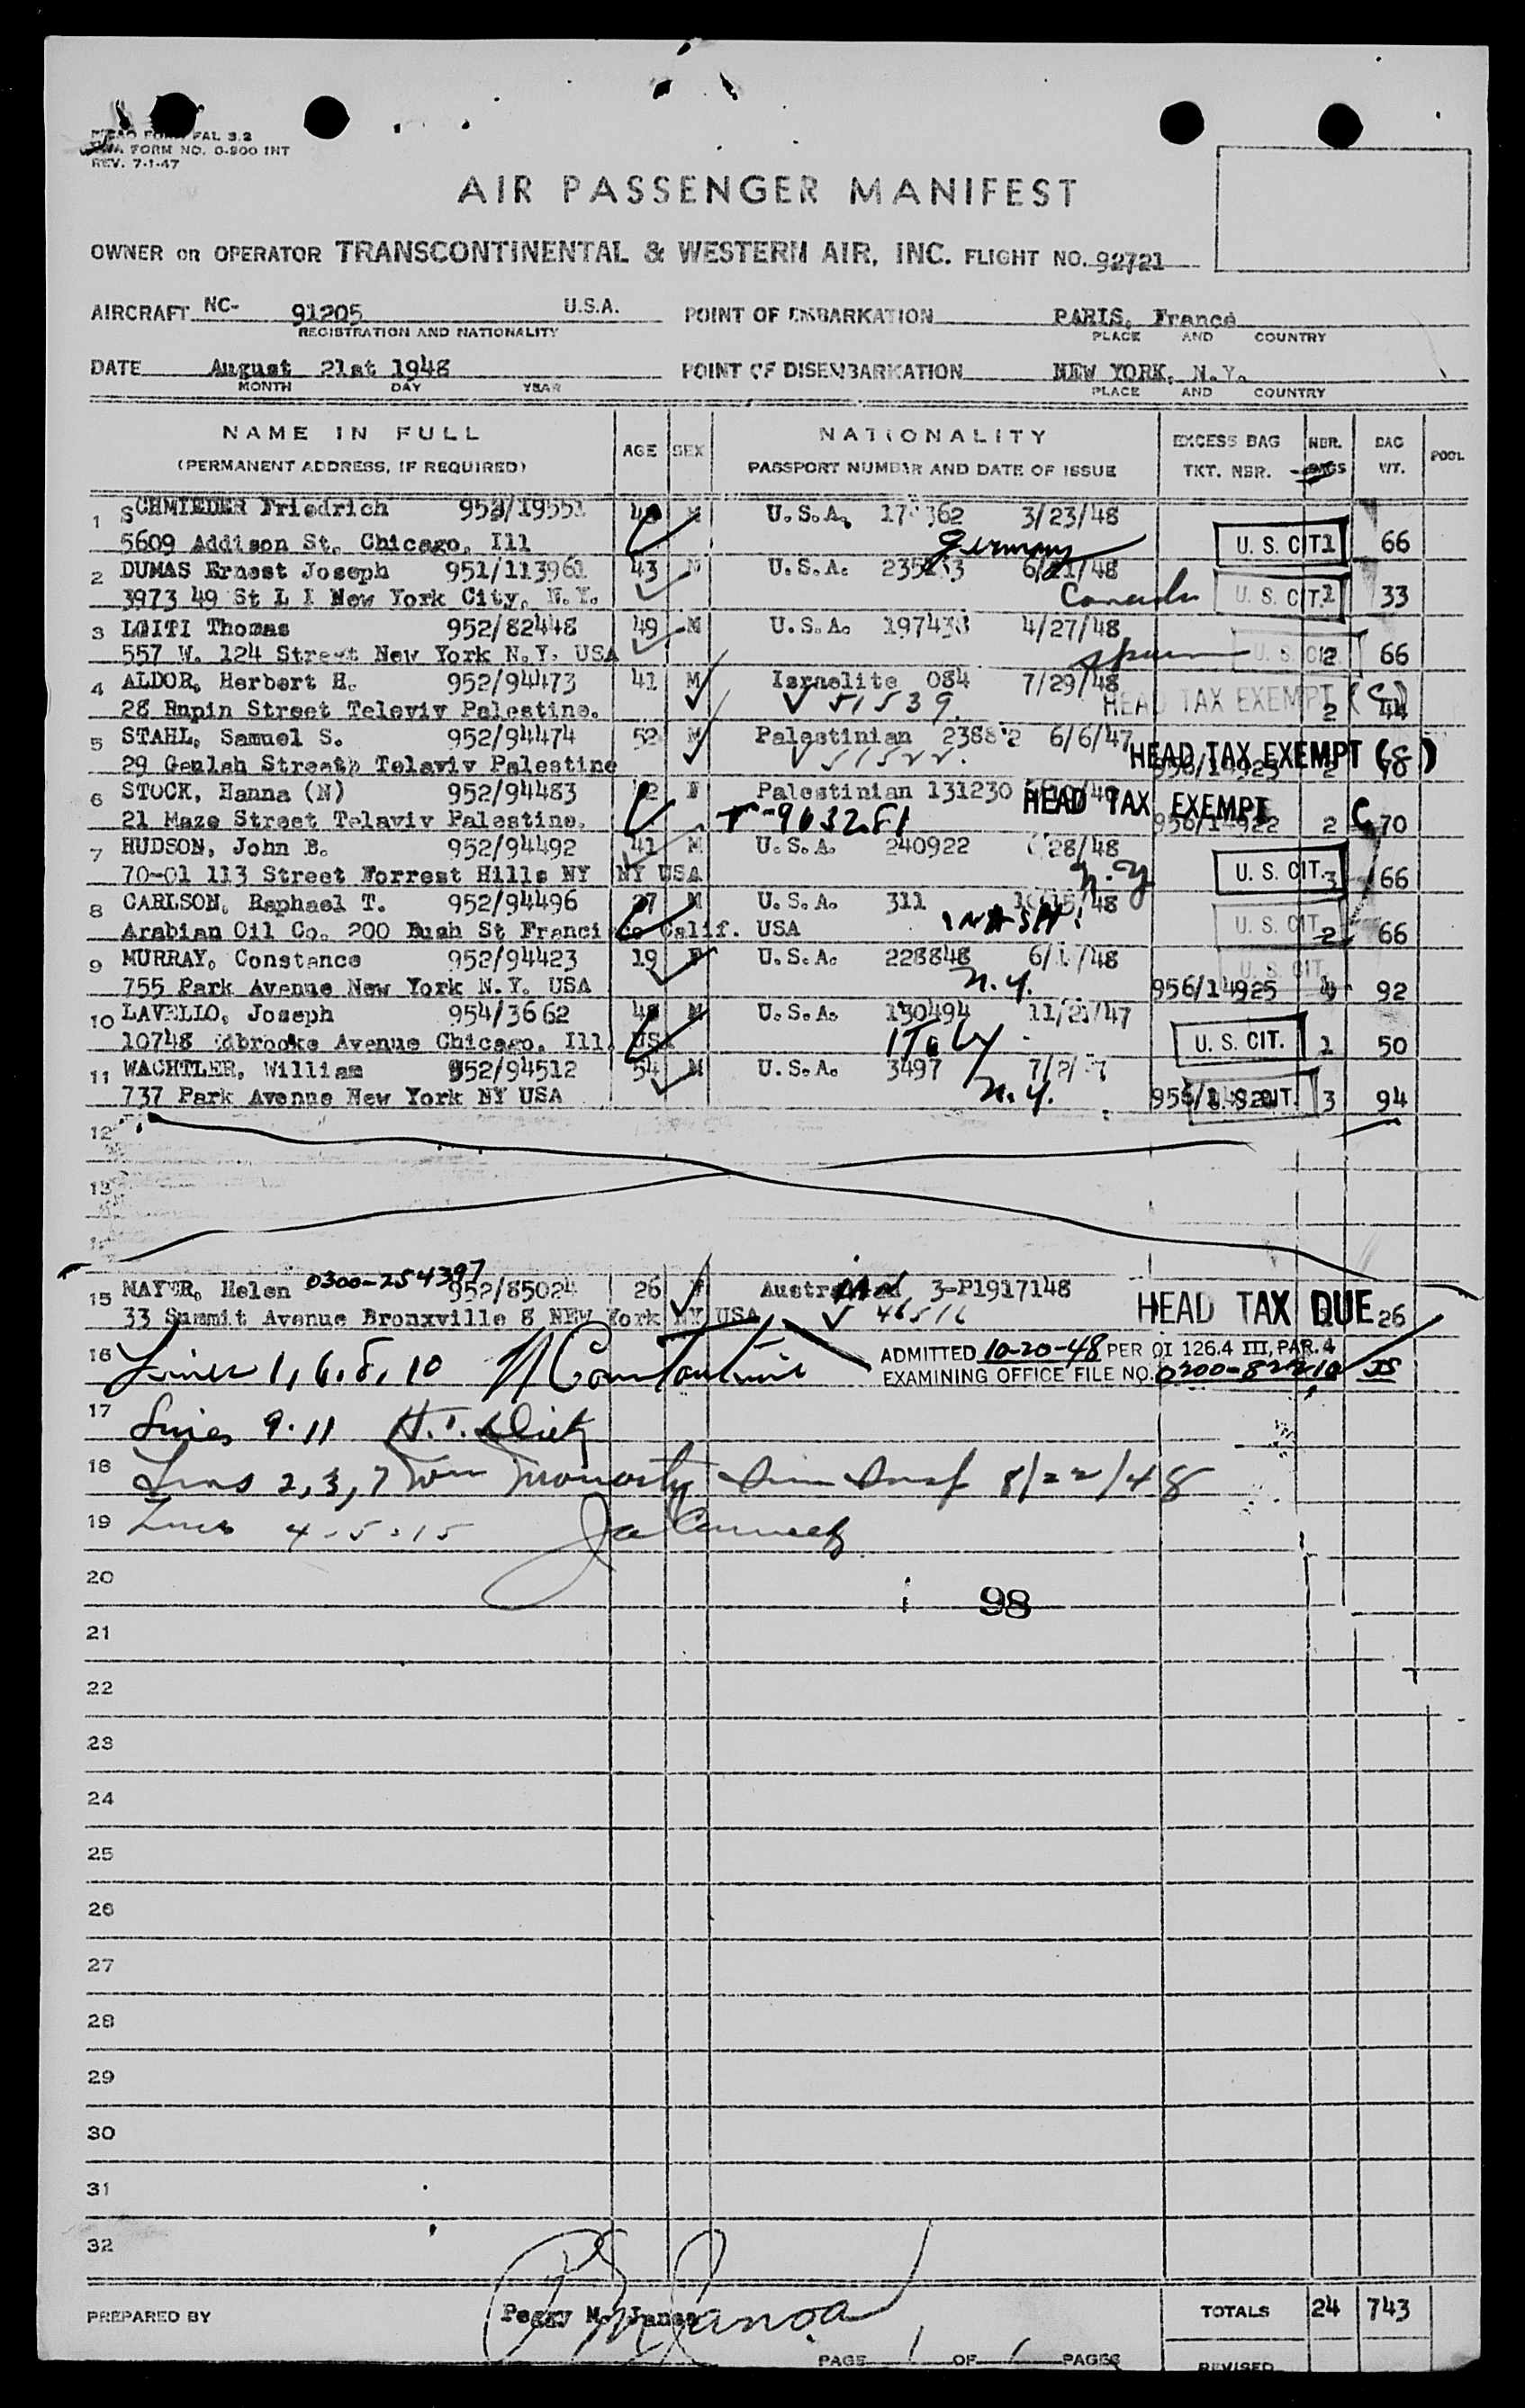 FAL 3.2
TWA FORM NO. 0-800 INT
REV. 7-1-47
AIR PASSENGER MANIFEST
OWNER OR OPERATOR TRANSCONTINENTAL & WESTERN AIR, INC. FLIGHT NO. 92721
AIRCRAFT NC- 91205 U.S.A. POINT OF EMBARKATION PARIS, France
REGISTRATION AND NATIONALITY PLACE AND COUNTRY
DATE August 21st 1948 POINT OF DISEMBARKATION NEW YORK, N.Y.
MONTH DAY YEAR PLACE AND COUNTRY
NAME IN FULL AGE SEX NATIONALITY EXCESS BAG NBR. BAG POOL
(PERMANENT ADDRESS, IF REQUIRED) PASSPORT NUMBER AND DATE OF ISSUE TKT. NBR. BAGS WT.
1 SCHMIEDER Friedrich 953/19551 M U.S.A. 3/23/48
5609 Addison St. Chicago, Ill Germany U.S. CIT 1 66
2 DUMAS Ernest Joseph 951/113961 43 M U.S.A. 6/21/48
3973 49 St L I New York City, N.Y. Canada U.S. CIT. 1 33
3 LOITI Thomas 952/82448 49 M U.S.A. 197438 4/27/48
557 W. 124 Street New York N.Y. USA Spain U.S. CIT. 2 66
4 ALDOR, Herbert H. 952/94473 41 M Israelite 084 7/29/48
28 Rupin Street Televiv Palestine. V 51539 HEAD TAX EXEMPT (C) 2 44
5 STAHL, Samuel S. 952/94474 52 M Palestinian 6/6/47
29 Geulah Street Telaviv Palestine V 51522. HEAD TAX EXEMPT (8) 956/14923 2 70
6 STOCK, Hanna (N) 952/94483 F Palestinian 131230
21 Maze Street Telaviv Palestine. T-963281 HEAD TAX EXEMPT C 956/14922 2 70
7 HUDSON, John B. 952/94492 41 M U.S.A. 240922 28/48
70-01 113 Street Forrest Hills NY NY USA N.Y U.S. CIT. 3 66
8 CARLSON, Raphael T. 952/94496 27 M U.S.A. 311 15/48
Arabian Oil Co. 200 Bush St Franci co Calif. USA WASH. U.S. CIT. 2 66
9 MURRAY, Constance 952/94423 19 F U.S.A. 228848 48
755 Park Avenue New York N.Y. USA N.Y. U.S. CIT. 956/14925 4 92
10 LAVELLO, Joseph 954/3662 48 M U.S.A. 130494 47
10748 Avenue Chicago, Ill. USA ITaly U.S. CIT. 1 50
11 WACHTLER, William 952/94512 54 M U.S.A. 3497
737 Park Avenue New York NY USA N.Y. U.S. CIT. 3 94
12
13
15 MAYER, Helen 0300-254397 952/85024 26 F 3-P1917148
33 Summit Avenue Bronxville 8 NEW York NY USA V 46516 HEAD TAX DUE 26
16 Lines 1, 6, 8, 10 ADMITTED 10-20-48 PER OI 126.4 III, PAR. 4
EXAMINING OFFICE FILE NO. JS
17 Lines 9-11
18 Lines 2, 3, 7 8/22/48
19 Lines 4-5-15
20
98
21
22
23
24
25
26
27
28
29
30
31
32
PREPARED BY Peggy M. TOTALS 24 743
PAGE 1 OF 1 PAGES REVISED